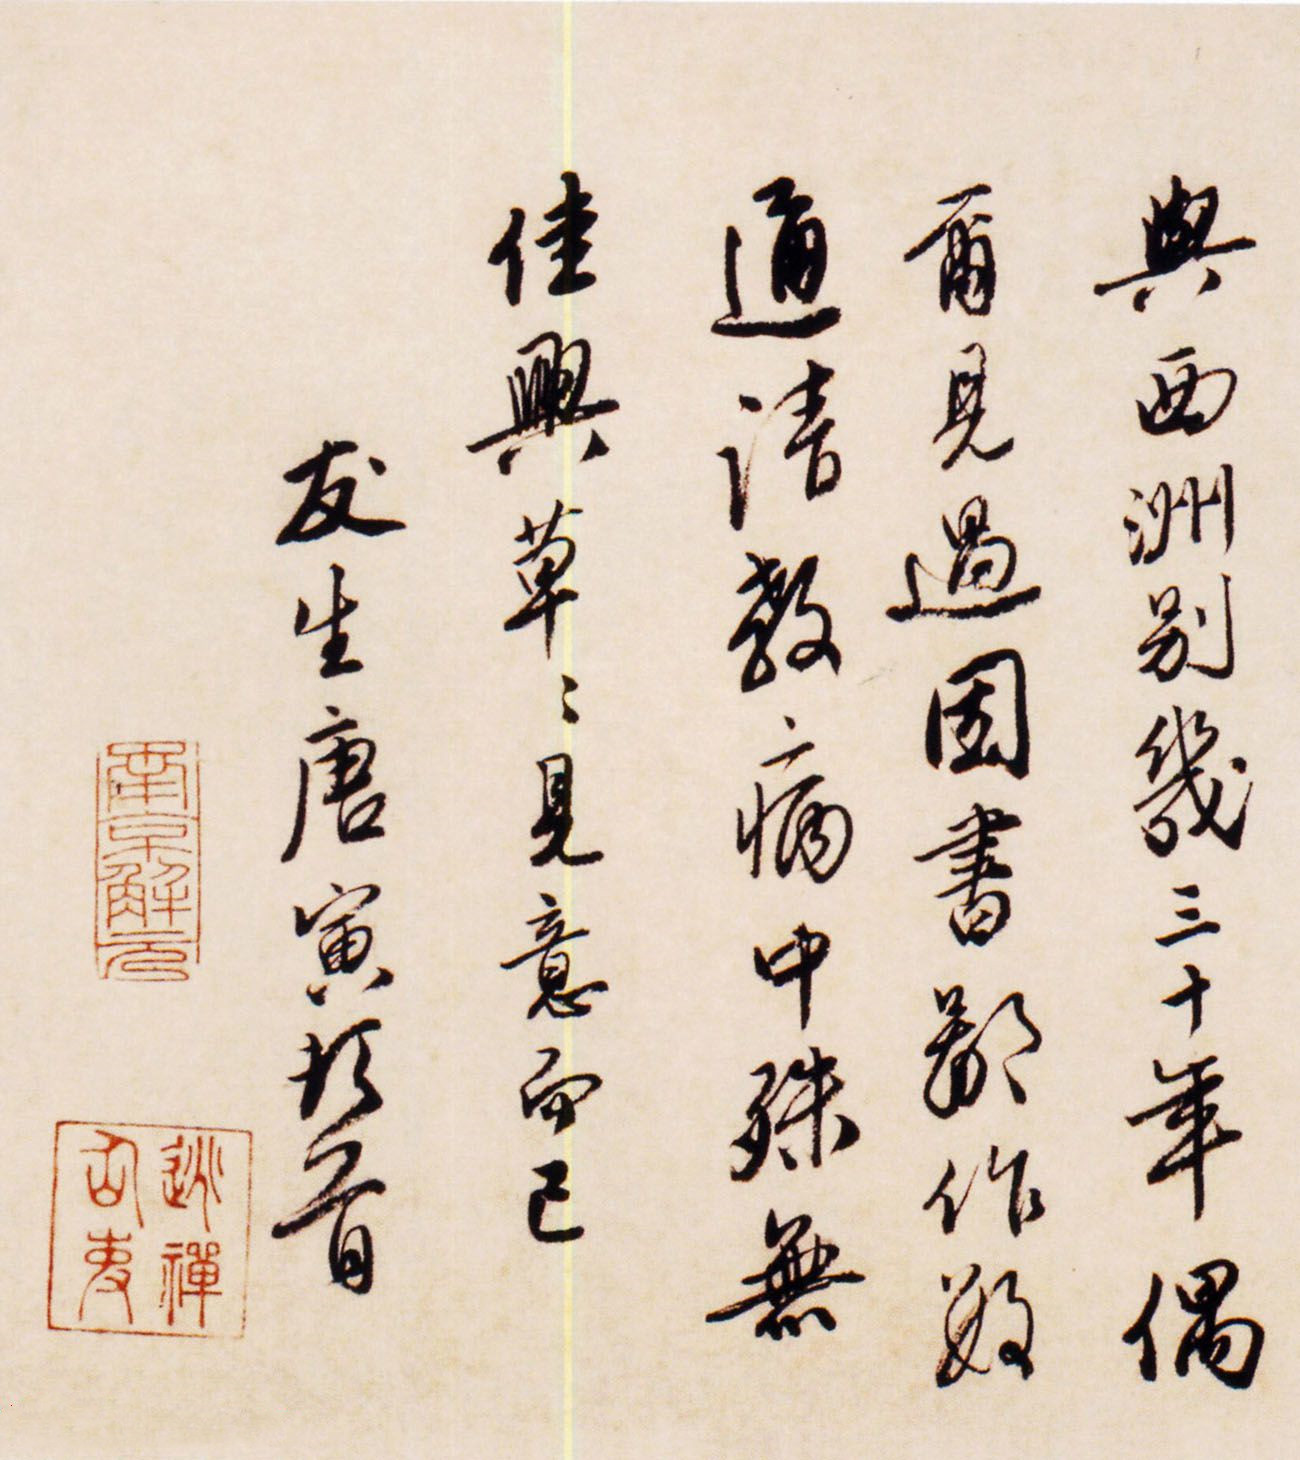 與西洲別幾三十年偶
爾見過因書鄙作數
遍請教病中殊無
佳興草〻見意而已
友生唐寅頓首
南京解元
逃禪仙吏